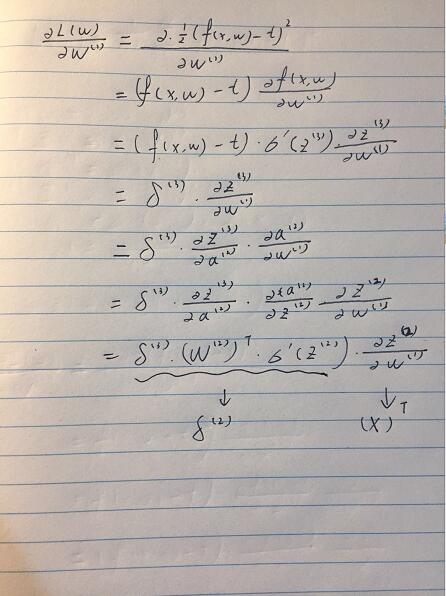 ∂L(w)/∂w⁽¹⁾ = ∂·½(f(x,w)-t)²/∂w⁽¹⁾
= (f(x,w)-t) ∂f(x,w)/∂w⁽¹⁾
= (f(x,w)-t)·σ'(z⁽³⁾) ∂z⁽³⁾/∂w⁽¹⁾
= δ⁽³⁾·∂z⁽³⁾/∂w⁽¹⁾
= δ⁽³⁾·∂z⁽³⁾/∂a⁽²⁾·∂a⁽²⁾/∂w⁽¹⁾
= δ⁽³⁾·∂z⁽³⁾/∂a⁽²⁾·∂a⁽²⁾/∂z⁽²⁾ ∂z⁽²⁾/∂w⁽¹⁾
= δ⁽³⁾·(W⁽²⁾)ᵀ·σ'(z⁽²⁾)·∂z⁽²⁾/∂w⁽¹⁾
↓ ↓
δ⁽²⁾ (X)ᵀ